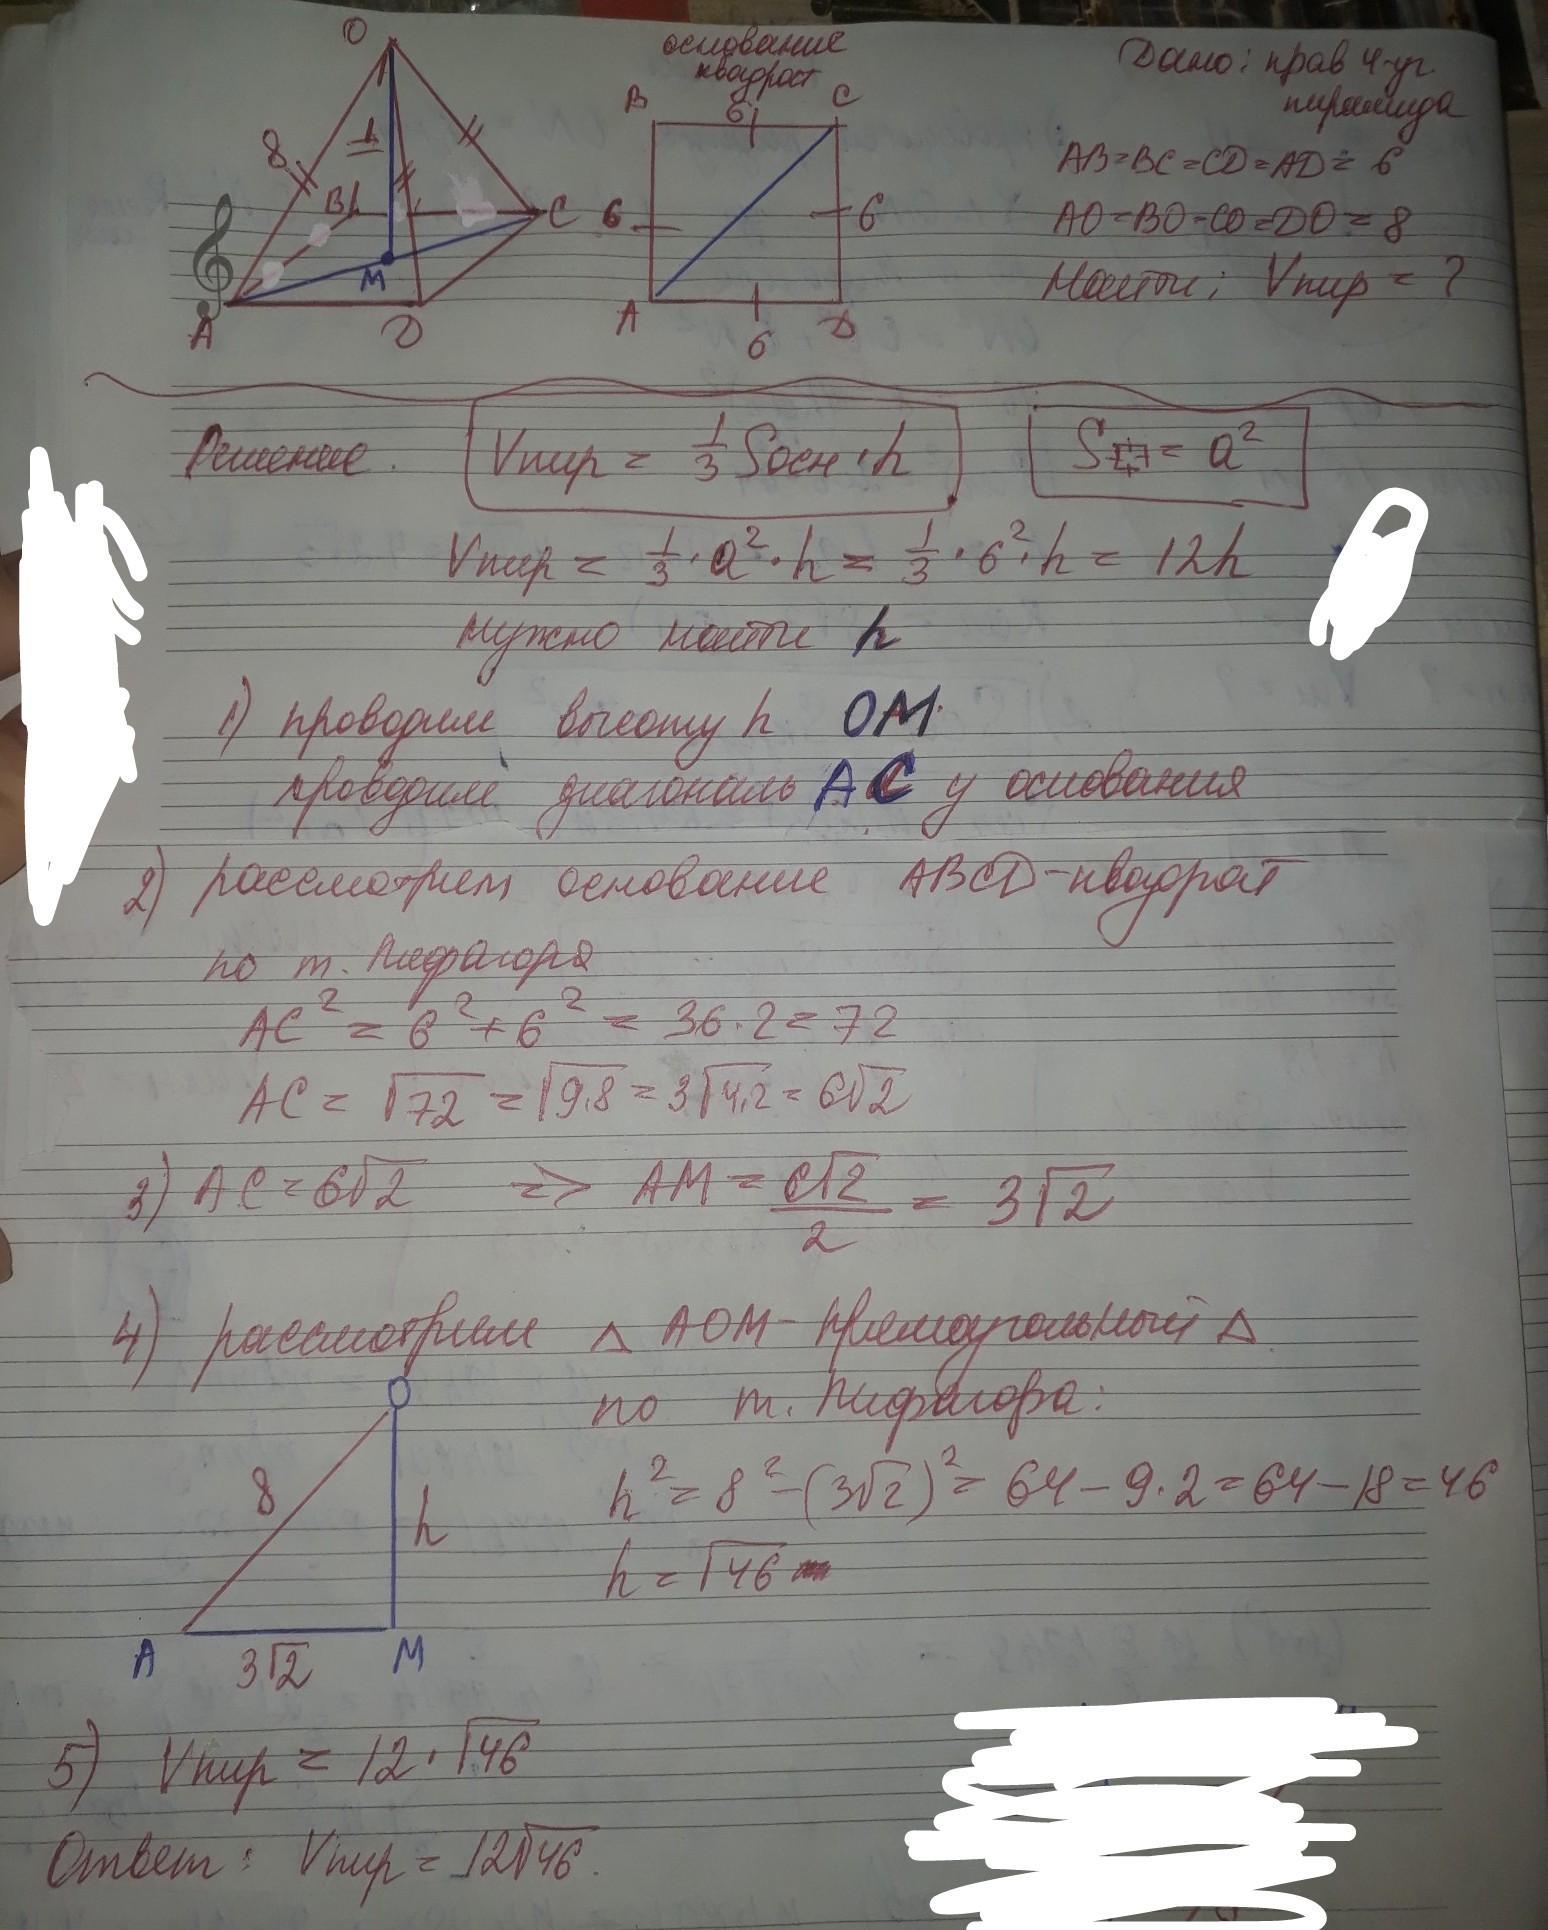 O
8
h
B
C
M
A
D
основание
квадрат
B
6
C
6
6
A
6
D
Дано: прав 4-уг.
пирамида
AB=BC=CD=AD=6
AO=BO=CO=DO=8
Найти: Vпир = ?
Решение.
Vпир = 1/3 Sосн · h
S = a²
Vпир = 1/3 · a² · h = 1/3 · 6² · h = 12h
нужно найти h
1) проводим высоту h OM
проводим диагональ AC у основания
2) рассмотрим основание ABCD-квадрат
по т. Пифагора
AC² = 6² + 6² = 36·2 = 72
AC = √72 = √9·8 = 3√4·2 = 6√2
3) AC = 6√2 => AM = 6√2/2 = 3√2
4) рассмотрим △ AOM - прямоугольный △
по т. Пифагора:
O
8
h
A
3√2
M
h² = 8² - (3√2)² = 64 - 9·2 = 64 - 18 = 46
h = √46
5) Vпир = 12 · √46
Ответ: Vпир = 12√46.